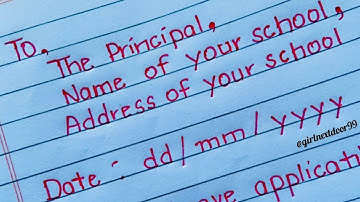 To,
The Principal,
Name of your school,
Address of your school
Date: dd/mm/yyyy
@girlnextdoor99